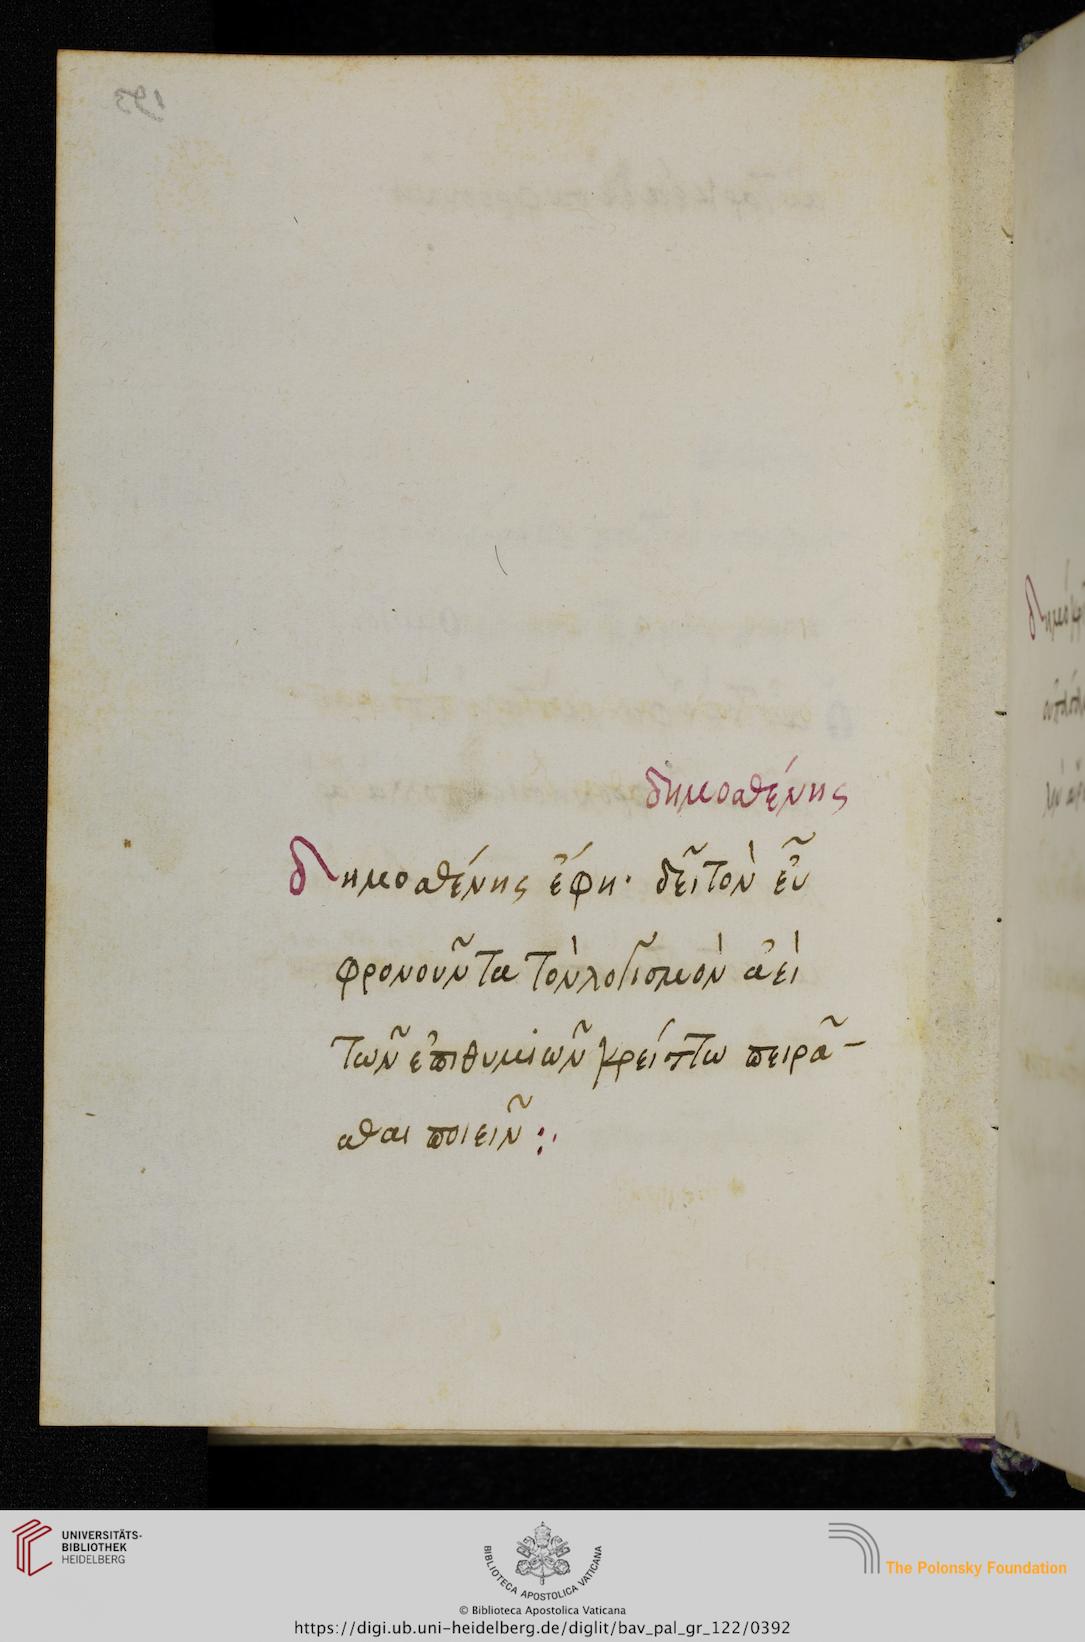 193
δημοσθένης
Δημοσθένης ἔφη· δεῖ τὸν εὖ
φρονοῦντα τὸν λογισμὸν ἀεὶ
τῶν ἐπιθυμιῶν κρείττω πειρᾶ-
σθαι ποιεῖν:
UNIVERSITÄTS-
BIBLIOTHEK
HEIDELBERG
BIBLIOTECA APOSTOLICA VATICANA
The Polonsky Foundation
© Biblioteca Apostolica Vaticana
https://digi.ub.uni-heidelberg.de/diglit/bav_pal_gr_122/0392